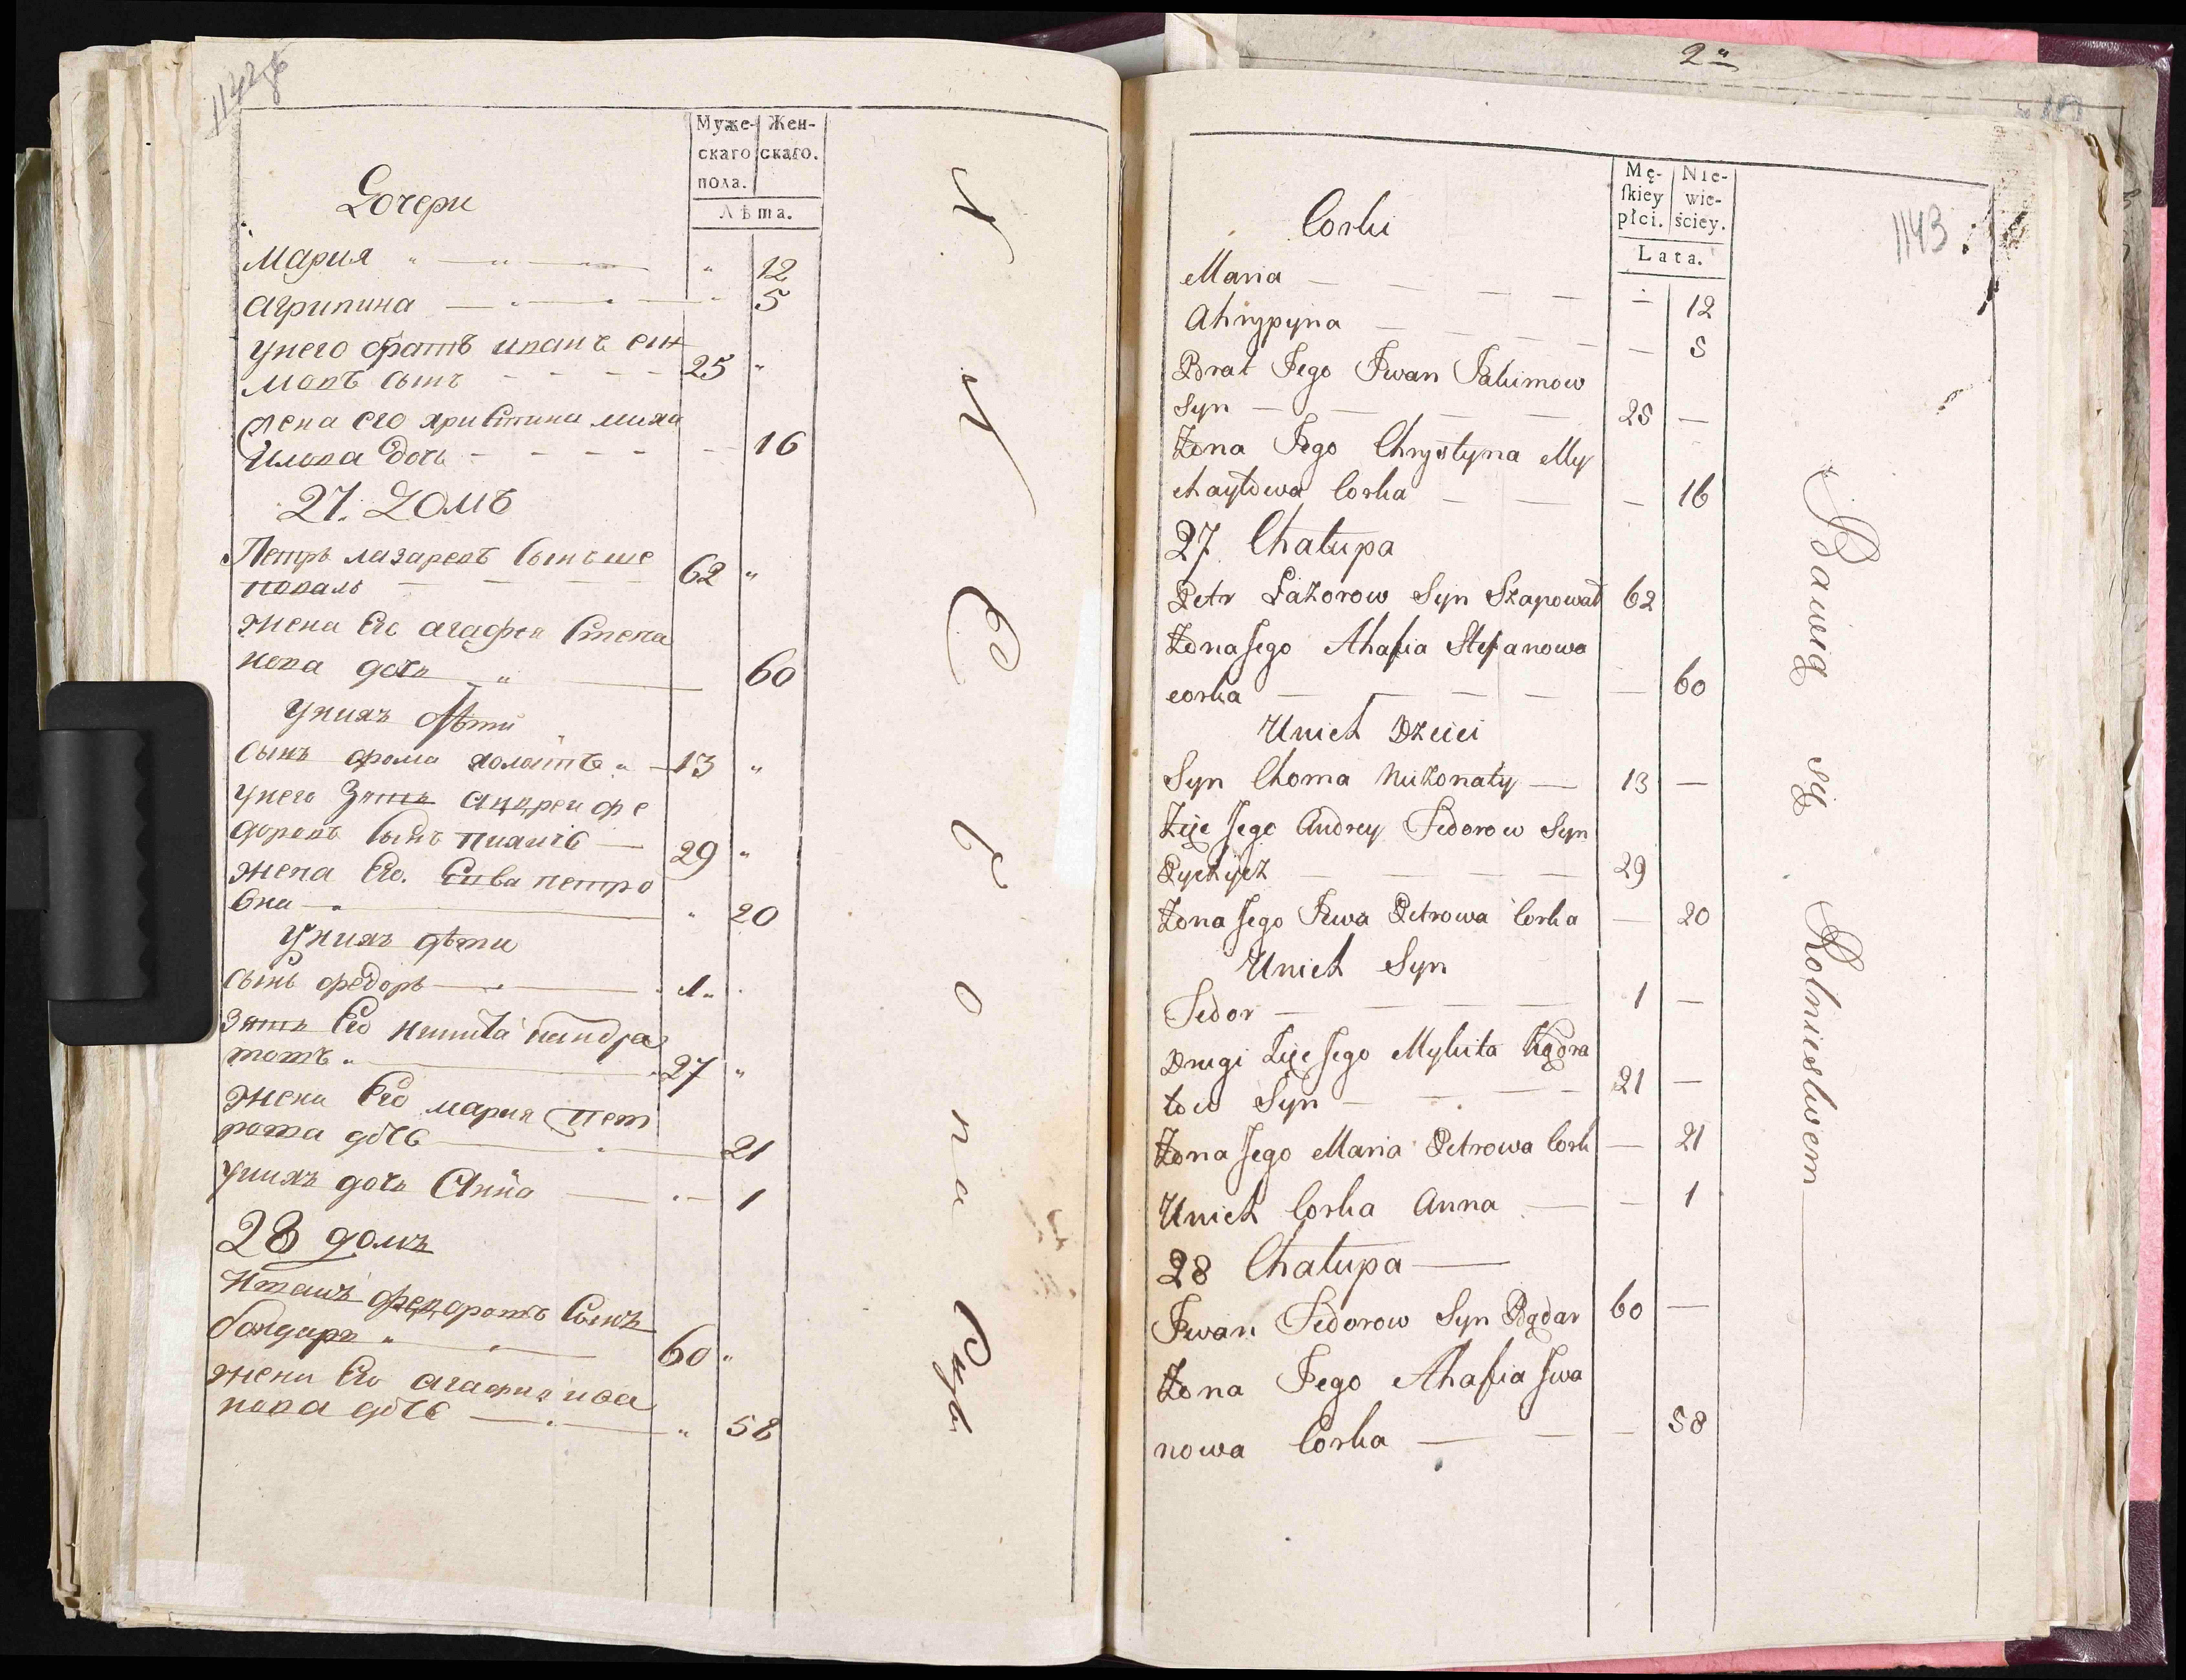 Муже-
скаго
пола.
Жен-
скаго.
Лѣта.
Дочери
Мария 12
Агрипина 5
унего братъ иванъ еки
мовъ сынъ 25
жена его христина миха
йлова дочь 16
27. Домъ
Петръ лазаревъ сынъ ше
поваль 62
жена Его агафия степа
нова дочь 60
унихъ дѣти
сынъ фома 13
унего зять андреи фе
доровъ сынъ 29
жена Его. Ева петро
вна 20
унихъ дѣти
сынъ федоръ 1
зять Его никита кандра
товъ 27
жена Его мария пет
рова дочь 21
унихъ дочь Анна 1
28 домъ
Иванъ федоровъ сынъ
бондарь 60
жена Его агафия ива
нова дочь 58
2
1143
Mę-
skiey
płci.
Nie-
wie-
ściey.
Lata.
Corki
Maria — 12
Ahrypyna — 5
Brat Jego Iwan Jakimow
Syn — 25 —
Żona Jego Chrystyna My
chayłowa Corka — 16
27 Chałupa
Petr Łazorow Syn Szapował 62
Żona Jego Ahafia Stefanowa
corka — 60
Unich Dzieci
Syn Choma Niżonaty — 13 —
Zięc Jego Andrey Fedorow Syn
Pychycz — 29
Żona Jego Iewa Petrowa Corka — 20
Unich Syn
Fedor — 1 —
Drugi Zięc Jego Mykita Kądra
tow Syn — 21 —
Żona Jego Maria Petrowa Cork — 21
Unich Corka Anna — 1
28 Chałupa —
Iwan Fedorow Syn Bądar 60 —
Żona Jego Ahafia Iwa
nowa Corka — 58
Bawią się Rolnictwem